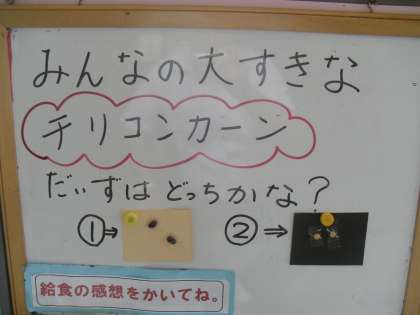 みんなの大すきな
チリコンカーン
だいずは どっちかな?
①⇒ ②⇒
給食の感想をかいてね。